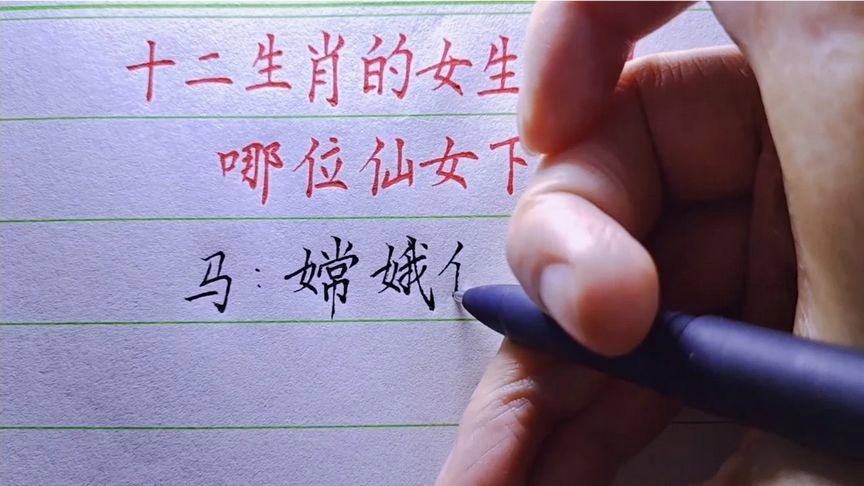 十二生肖的女生
哪位仙女下
马：嫦娥